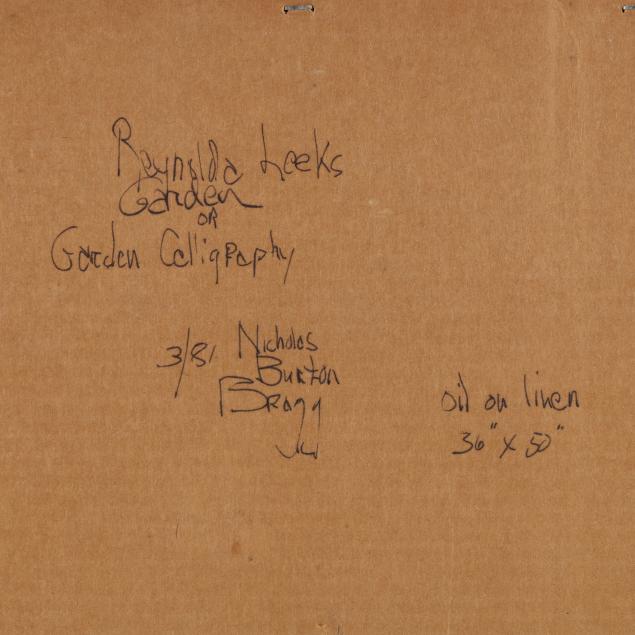 Reynolda Leeks
Garden
OR
Garden Calligraphy
3/81 Nicholas
Burton
Bragg
oil on linen
36" x 50"